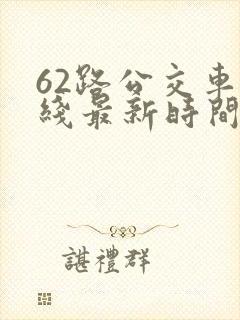 62路公交車
綫最新時間
諶禮群